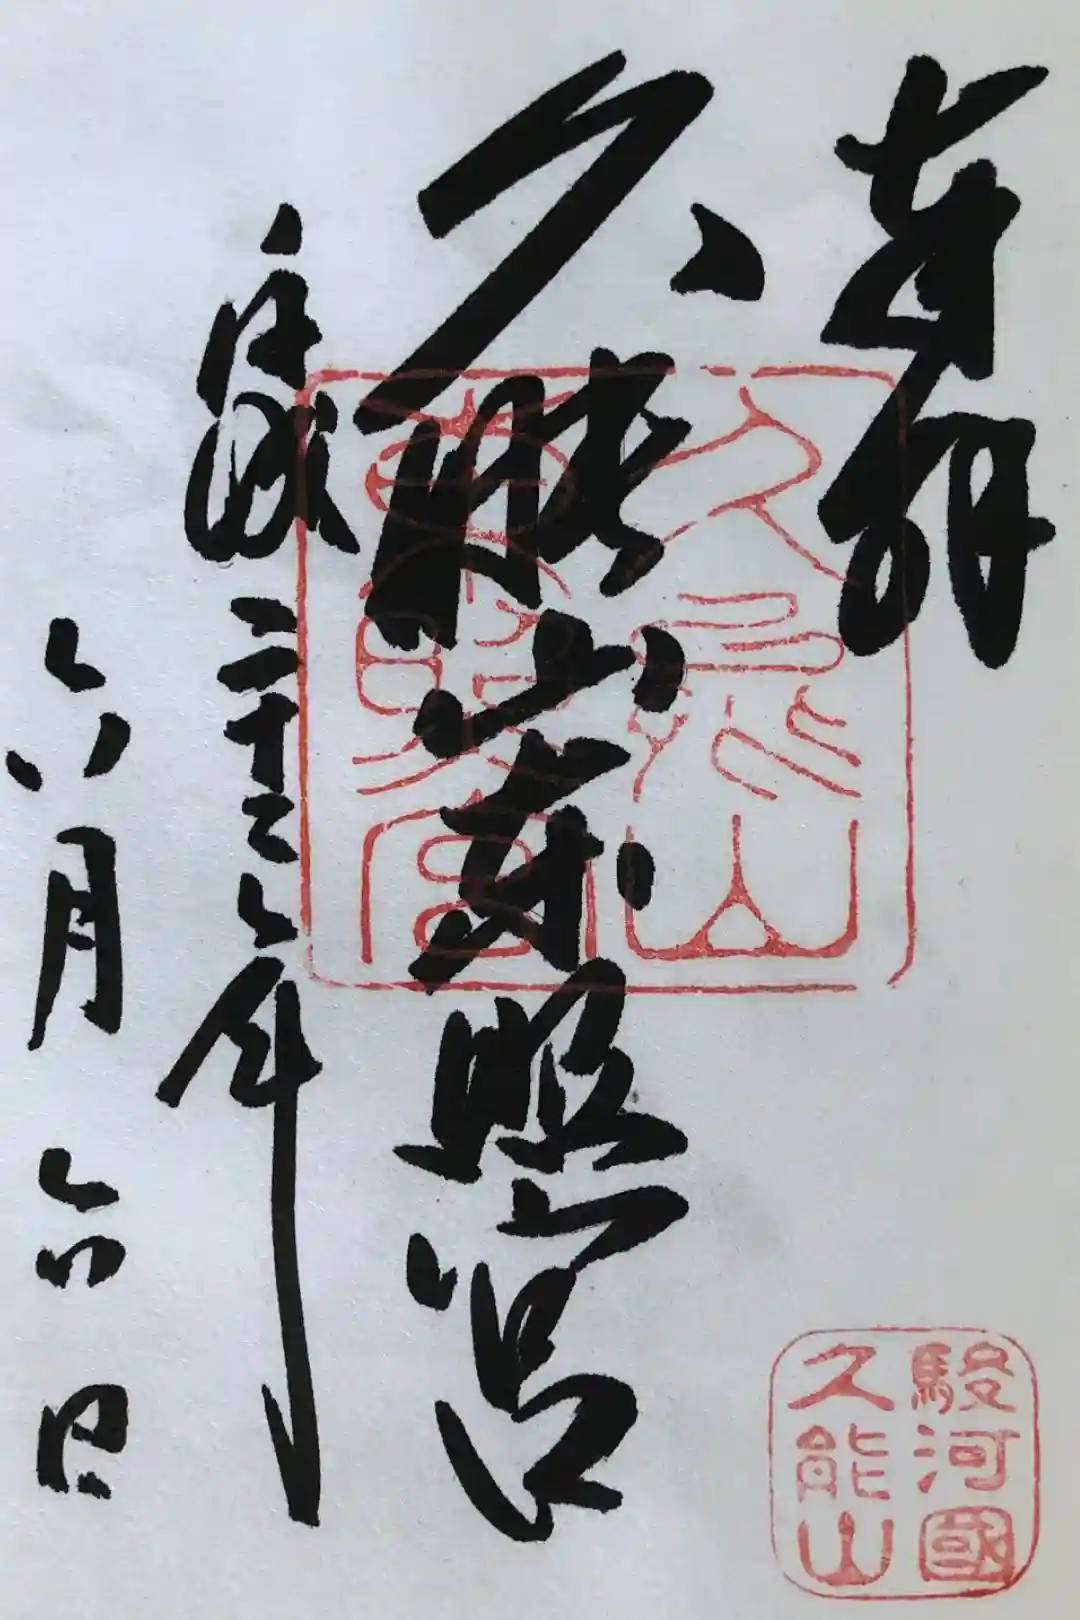 奉拝
久能山東照宮
平成二十二年
六月六日
久能山
東照宮
駿河國
久能山